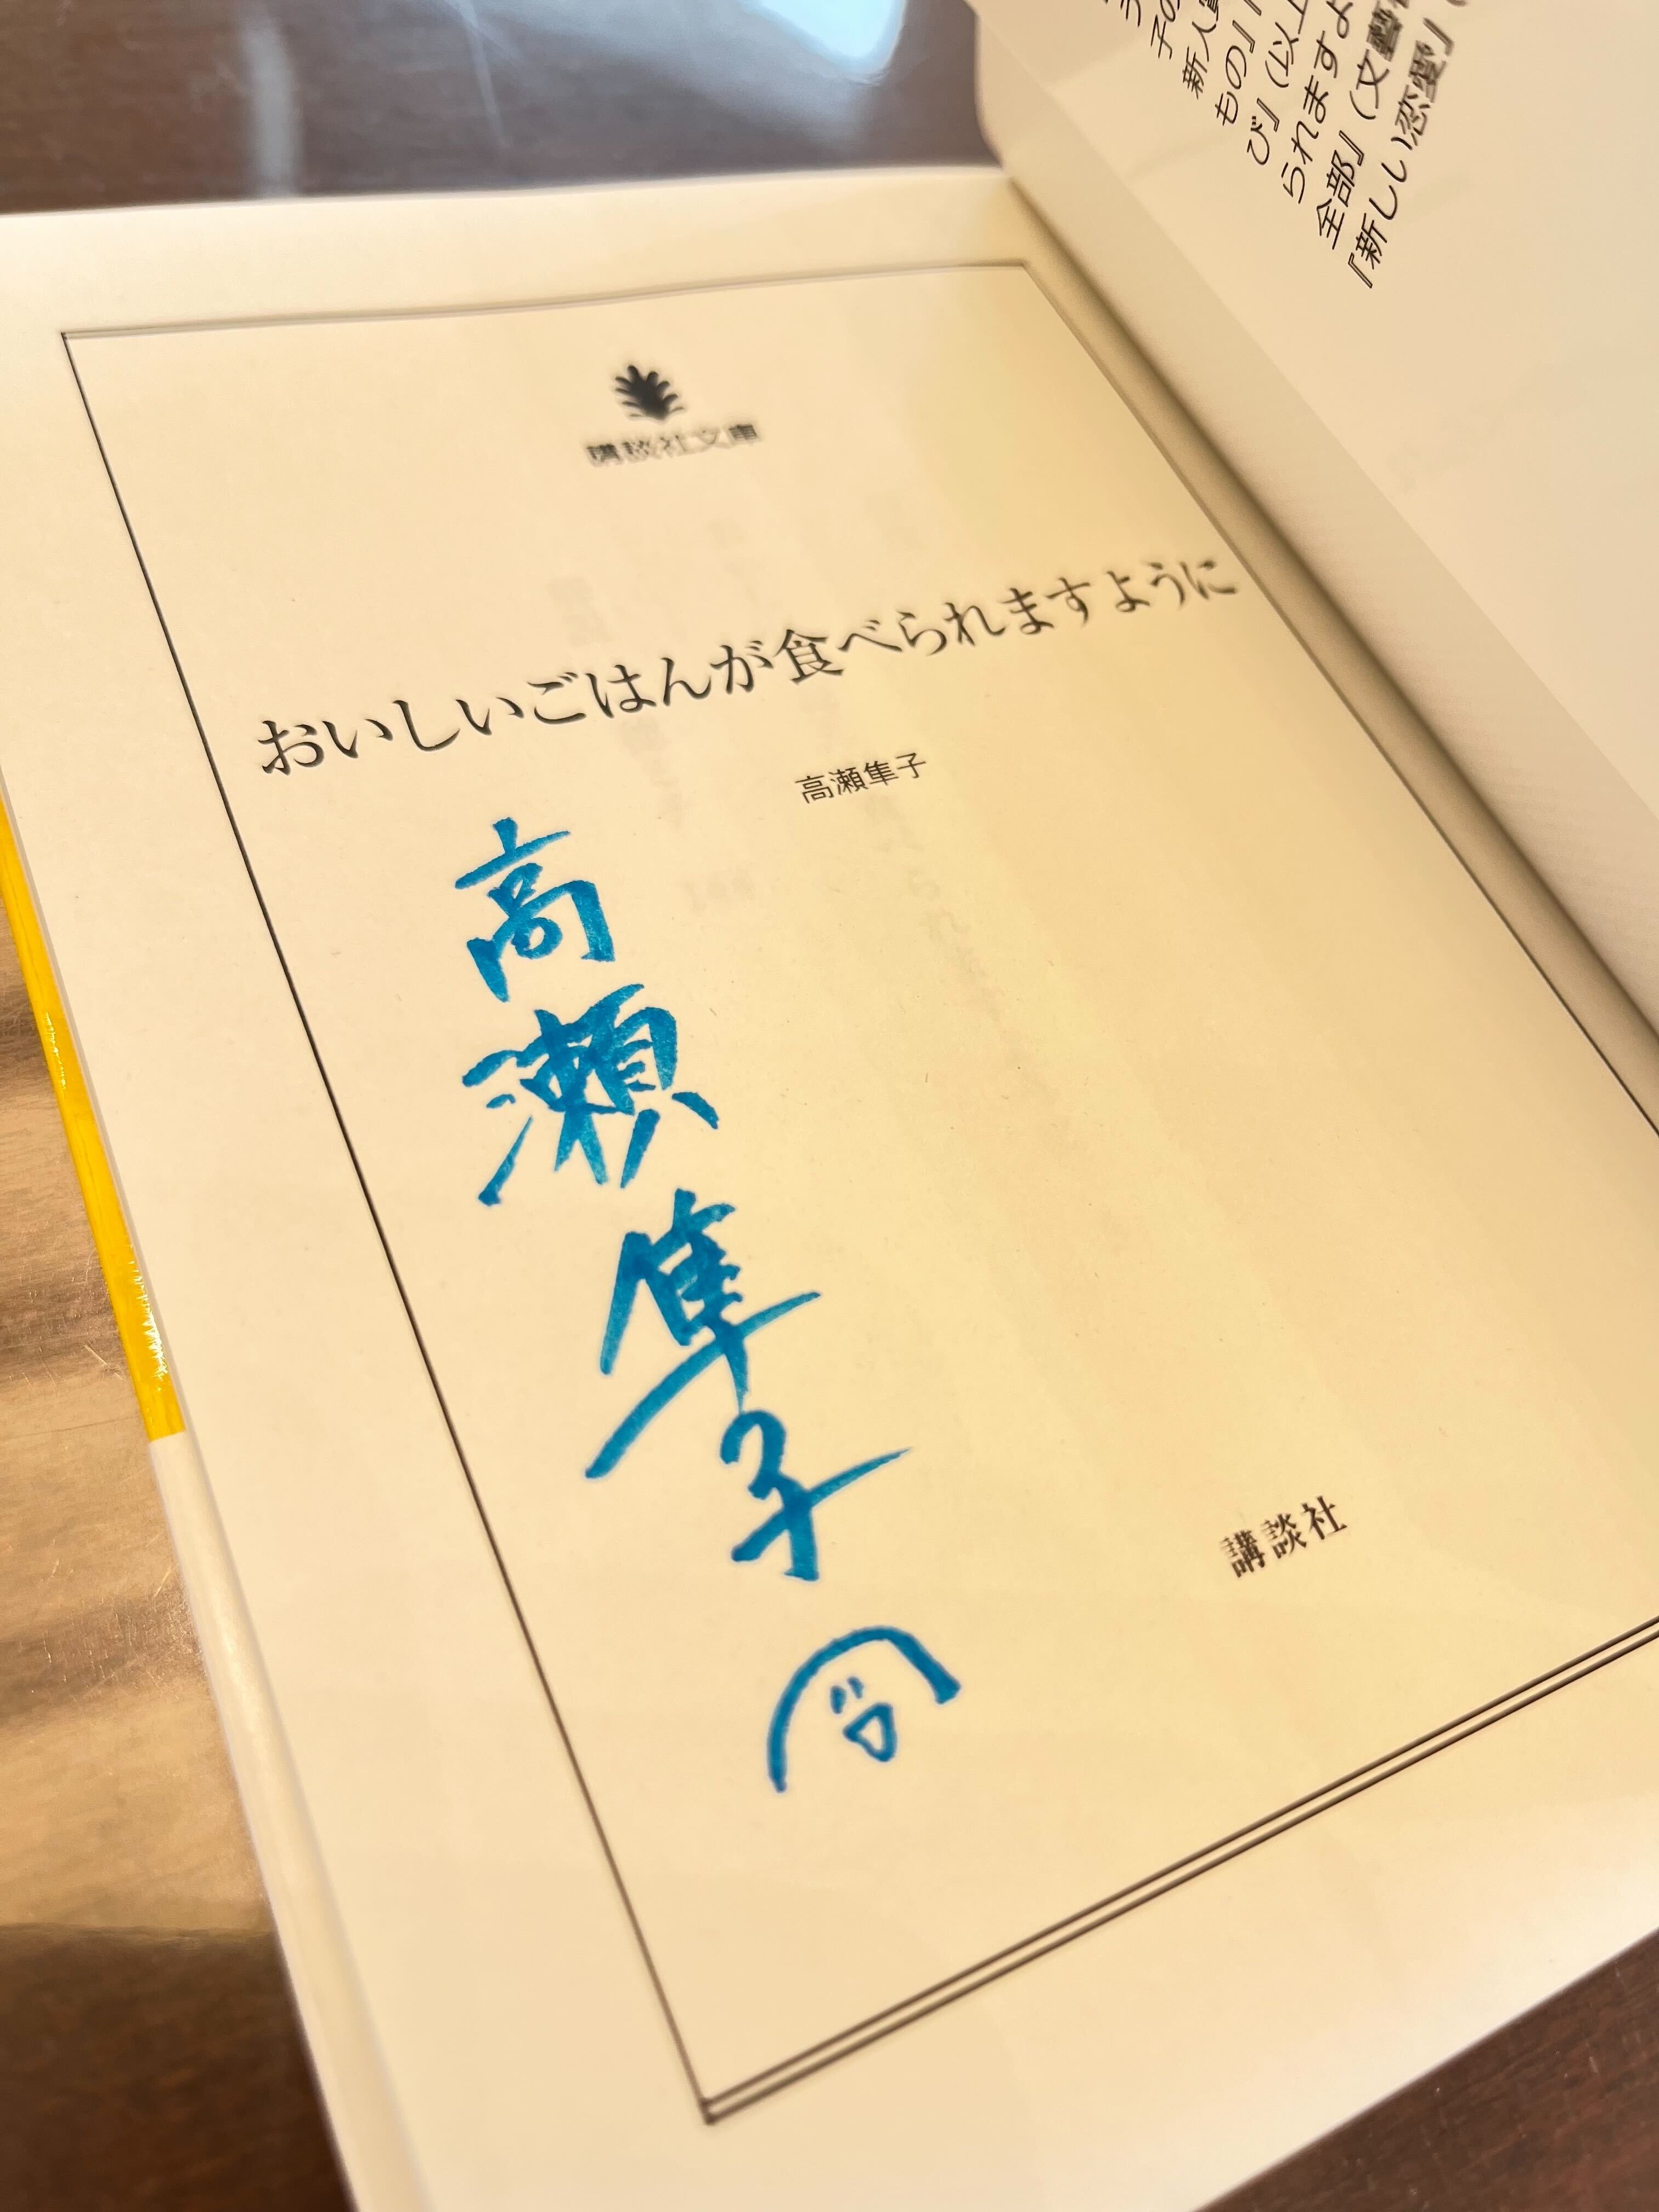 講談社文庫
おいしいごはんが食べられますように
高瀬隼子
高瀬隼子
講談社
子の
新人賞
もの』
び』(以上
られますよ
全部』(文藝
『新しい恋愛』(